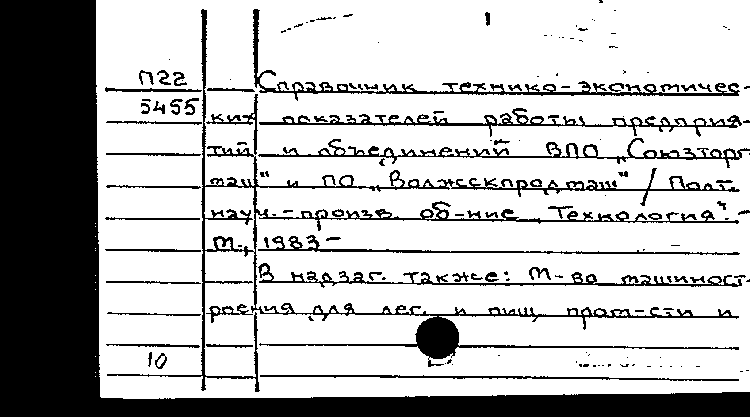 П22 Справочник технико-экономичес-
5455 ких показателей работы предприя-
тий и объединений ВПО „Союзторг-
маш" и ПО „Волжскпродмаш" / Полт.
науч.-произв. об-ние „Технология". -
М., 1983-
В надзаг. также: М-во машиност-
роения для лег. и пищ. пром-сти и
10